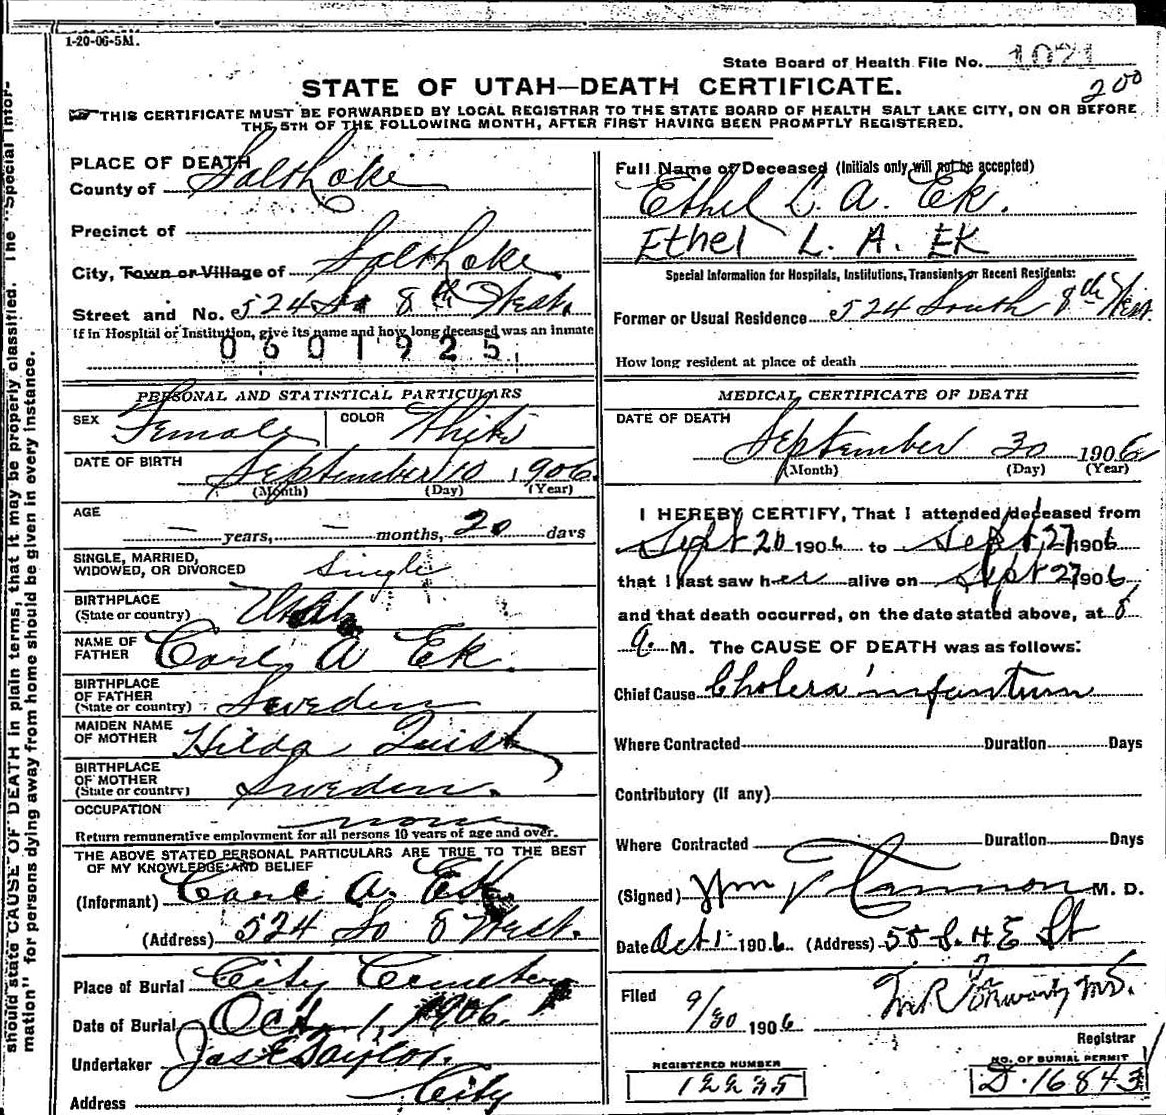 1-20-06-5M.
State Board of Health File No. 1021
200
STATE OF UTAH—DEATH CERTIFICATE.
THIS CERTIFICATE MUST BE FORWARDED BY LOCAL REGISTRAR TO THE STATE BOARD OF HEALTH SALT LAKE CITY, ON OR BEFORE
THE 5TH OF THE FOLLOWING MONTH, AFTER FIRST HAVING BEEN PROMPTLY REGISTERED.
should state CAUSE OF DEATH in plain terms, that it may be properly classified. The "Special Infor-
mation" for persons dying away from home should be given in every instance.
PLACE OF DEATH
County of Salt Lake
Precinct of
City, Town or Village of Salt Lake
Street and No. 524 So 8th West.
If in Hospital or Institution, give its name and how long deceased was an inmate
0601925
PERSONAL AND STATISTICAL PARTICULARS
SEX Female COLOR White
DATE OF BIRTH
September 10 1906.
(Month) (Day) (Year)
AGE
— years, — months, 20 days
SINGLE, MARRIED,
WIDOWED, OR DIVORCED Single
BIRTHPLACE
(State or country) Utah
NAME OF
FATHER Carl A Ek.
BIRTHPLACE
OF FATHER
(State or country) Sweden
MAIDEN NAME
OF MOTHER Hilda Quist
BIRTHPLACE
OF MOTHER
(State or country) Sweden.
OCCUPATION none
Return remunerative employment for all persons 10 years of age and over.
THE ABOVE STATED PERSONAL PARTICULARS ARE TRUE TO THE BEST
OF MY KNOWLEDGE AND BELIEF
(Informant) Carl A. Ek
(Address) 524 So 8 West.
Place of Burial City Cemetery
Date of Burial Oct 1, 1906.
Undertaker Jas E Taylor.
Address City
Full Name of Deceased (Initials only will not be accepted)
Ethel L. A. Ek.
Ethel L. A. EK
Special Information for Hospitals, Institutions, Transients or Recent Residents:
Former or Usual Residence 524 South 8th West.
How long resident at place of death
MEDICAL CERTIFICATE OF DEATH
DATE OF DEATH
September 30 1906
(Month) (Day) (Year)
I HEREBY CERTIFY, That I attended deceased from
Sept 20 1906 to Sept 27 1906
that I last saw her alive on Sept 27 1906
and that death occurred, on the date stated above, at 8
a. M. The CAUSE OF DEATH was as follows:
Chief Cause Cholera infantum
Where Contracted Duration Days
Contributory (if any)
Where Contracted Duration Days
(Signed) Wm Cannon M. D.
Date Oct 1 1906 (Address) 58 S. 4 E St
Filed 9/30 1906 M.D.
Registrar
REGISTERED NUMBER
12235
NO. OF BURIAL PERMIT
D. 16843